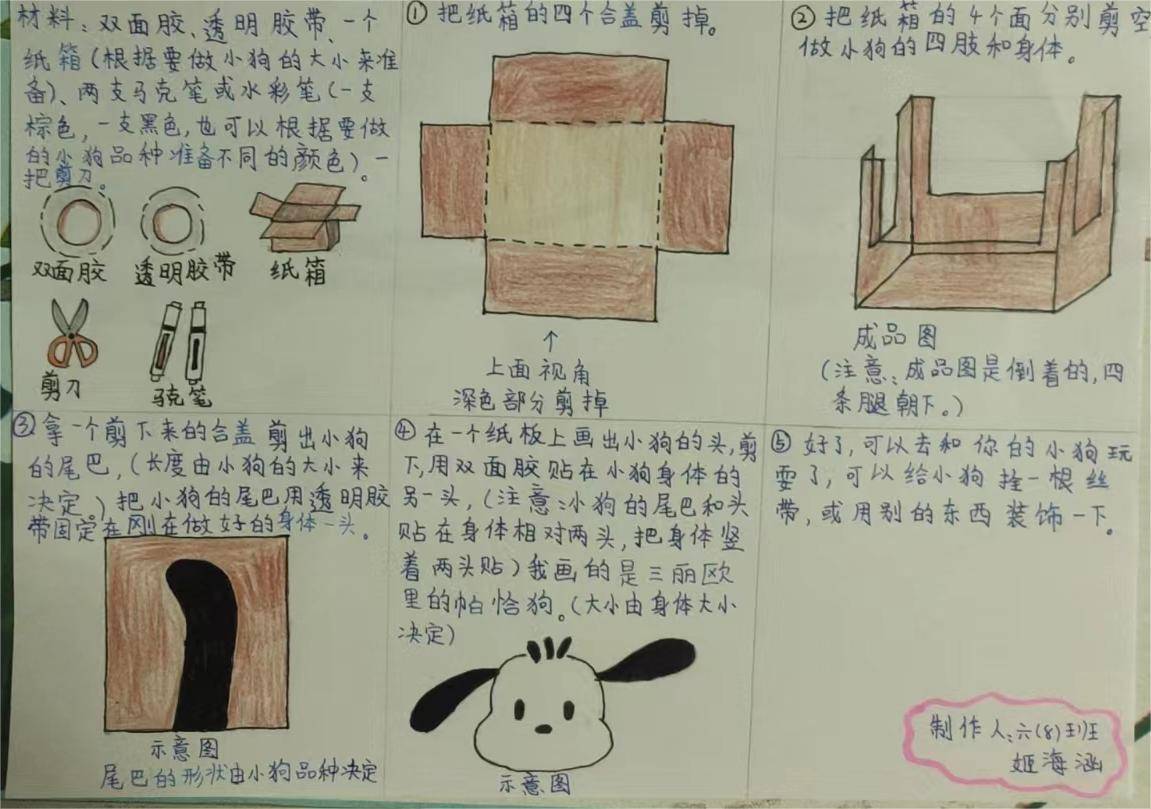 材料：双面胶、透明胶带、一个
纸箱（根据要做小狗的大小来准
备）、两支马克笔或水彩笔（一支
棕色，一支黑色，也可以根据要做
的小狗品种准备不同的颜色）一
把剪刀。
双面胶
透明胶带
纸箱
剪刀
马克笔
①把纸箱的四个合盖剪掉。
↑
上面视角
深色部分剪掉
②把纸箱的4个面分别剪空
做小狗的四肢和身体。
成品图
（注意：成品图是倒着的，四
条腿朝下。）
③拿一个剪下来的合盖剪出小狗
的尾巴，（长度由小狗的大小来
决定。）把小狗的尾巴用透明胶
带固定在刚在做好的身体一头。
示意图
尾巴的形状由小狗品种决定
④在一个纸板上画出小狗的头，剪
下，用双面胶贴在小狗身体的
另一头，（注意：小狗的尾巴和头
贴在身体相对两头，把身体竖
着两头贴）我画的是三丽欧
里的帕恰狗。（大小由身体大小
决定）
示意图
⑤好了，可以去和你的小狗玩
耍了，可以给小狗拴一根丝
带，或用别的东西装饰一下。
制作人：六(8)班
姬海涵